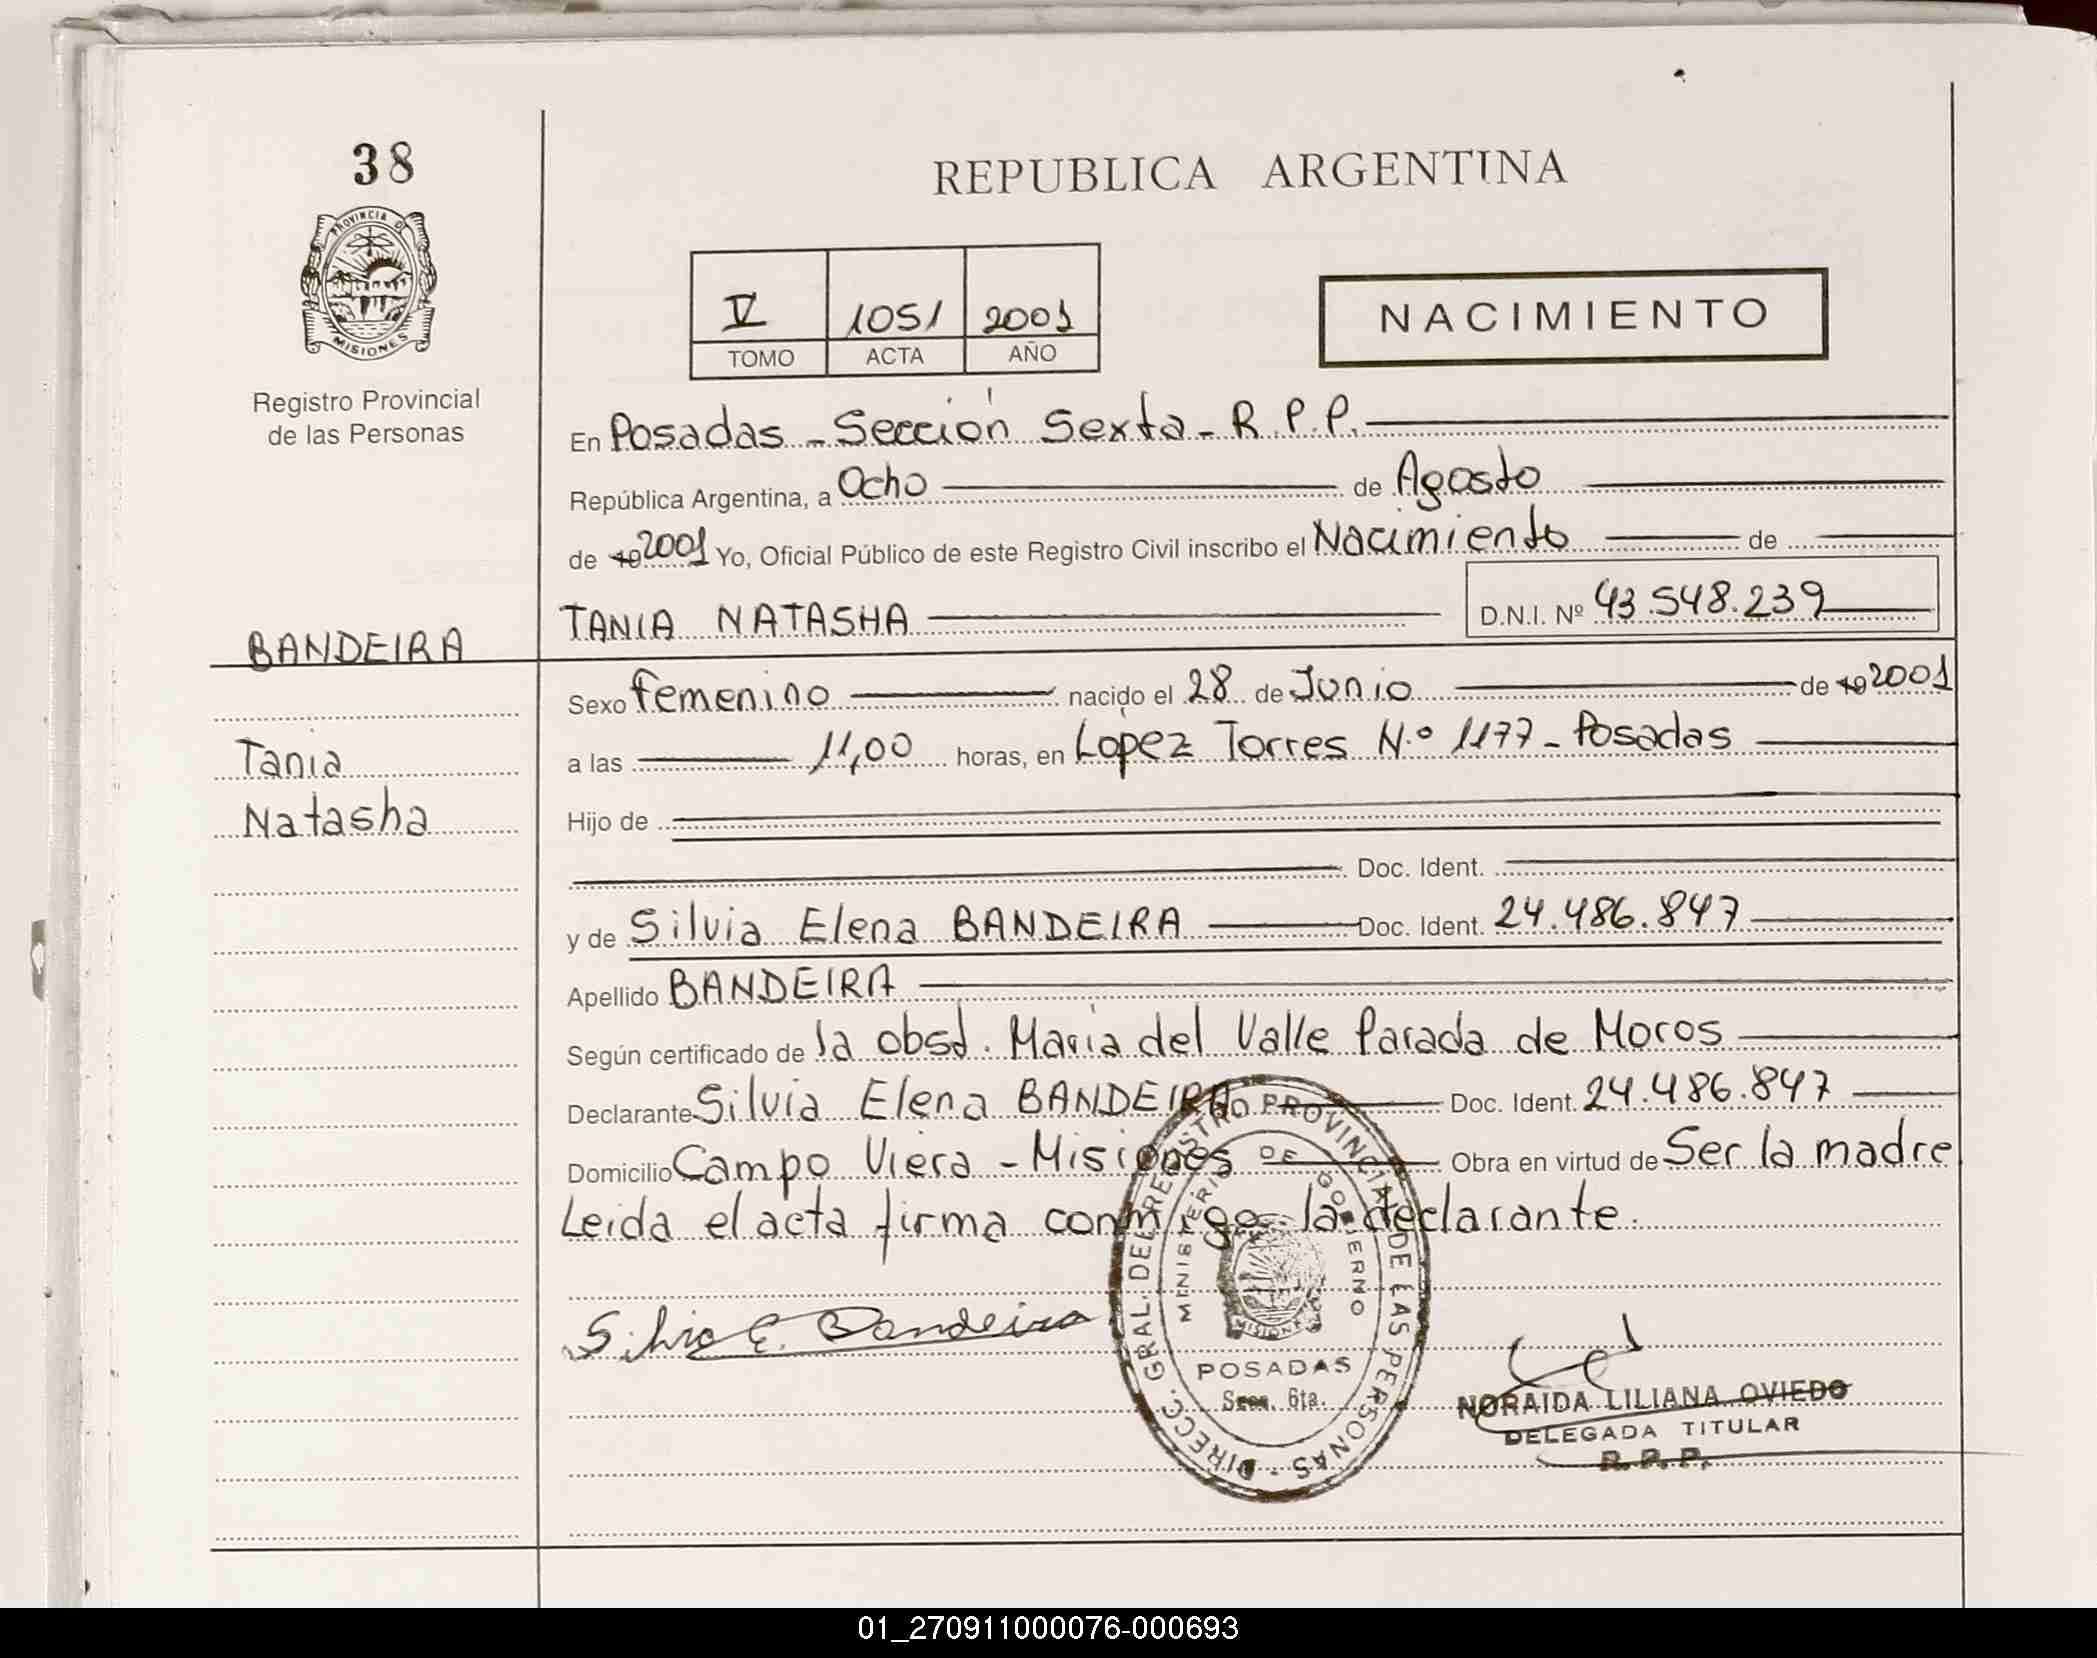 38
REPUBLICA ARGENTINA
PROVINCIA D
MISIONES
Registro Provincial
de las Personas
V 1051 2001
TOMO ACTA AÑO
NACIMIENTO
En Posadas - Sección Sexta - R.P.P.
República Argentina, a Ocho de Agosto
de 19 2001 Yo, Oficial Público de este Registro Civil inscribo el Nacimiento de
BANDEIRA
TANIA NATASHA D.N.I. Nº 43.548.239
Sexo femenino nacido el 28 de Junio de 19 2001
Tania
Natasha
a las 11,00 horas, en Lopez Torres N.º 1177 - Posadas
Hijo de
Doc. Ident.
y de Silvia Elena BANDEIRA Doc. Ident. 24.486.847
Apellido BANDEIRA
Según certificado de la obst. Maria del Valle Parada de Moros
Declarante Silvia Elena BANDEIRA Doc. Ident. 24.486.847
Domicilio Campo Viera - Misiones Obra en virtud de Ser la madre
Leida el acta firma conmigo la declarante.
Silvia E. Bandeira
DIRECC. GRAL. DEL REGISTRO PROVINCIAL DE LAS PERSONAS
MINISTERIO DE GOBIERNO
MISIONES
POSADAS
Secc. 6ta.
NORAIDA LILIANA OVIEDO
DELEGADA TITULAR
R. P. P.
01_270911000076-000693